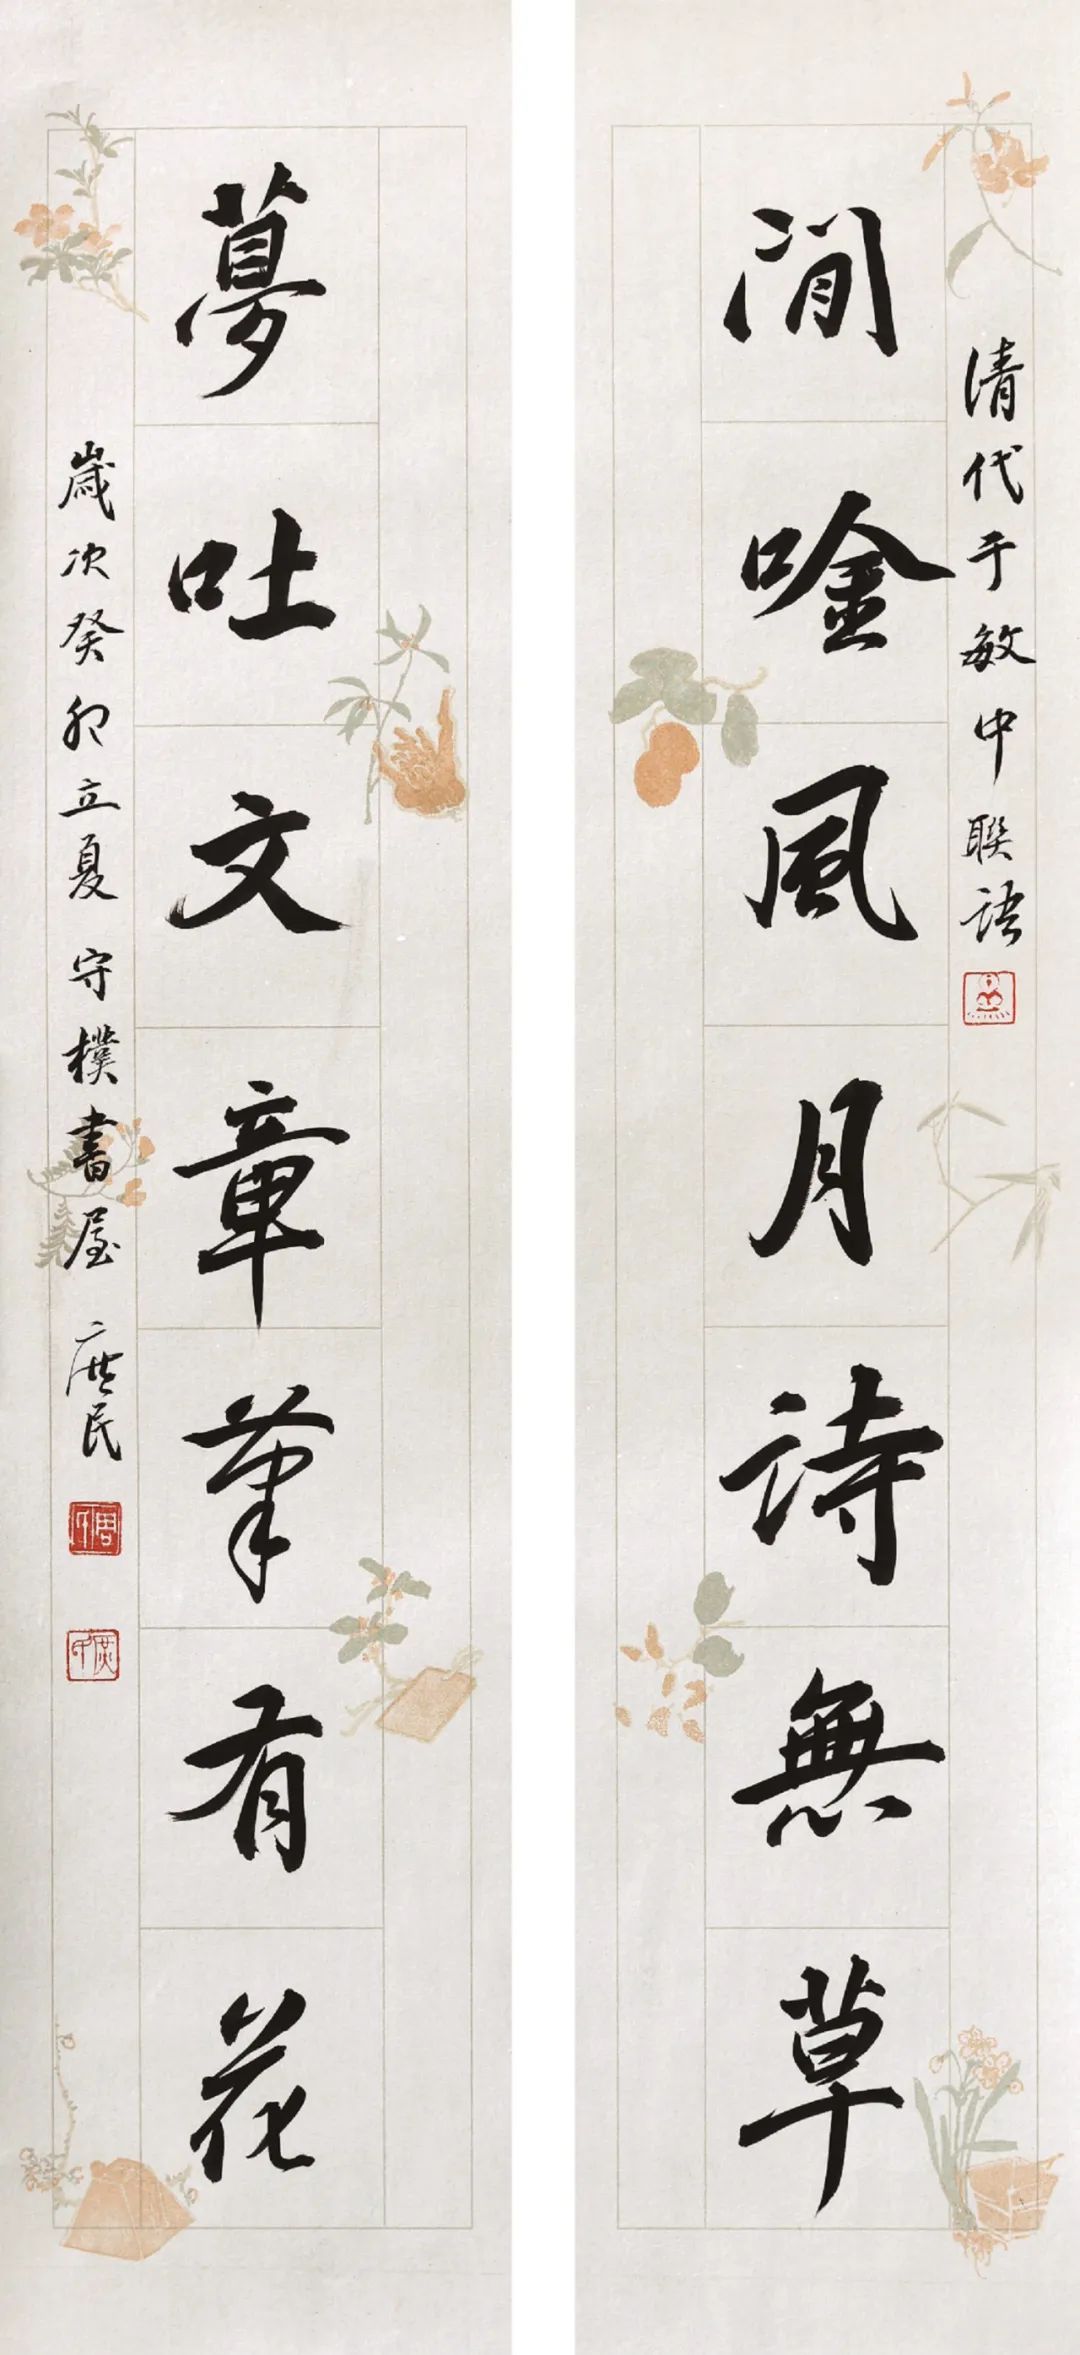 清代于敏中联语
閒唫風月詩無草
夢吐文章筆有花
歲次癸卯立夏 守樸書屋 庶民